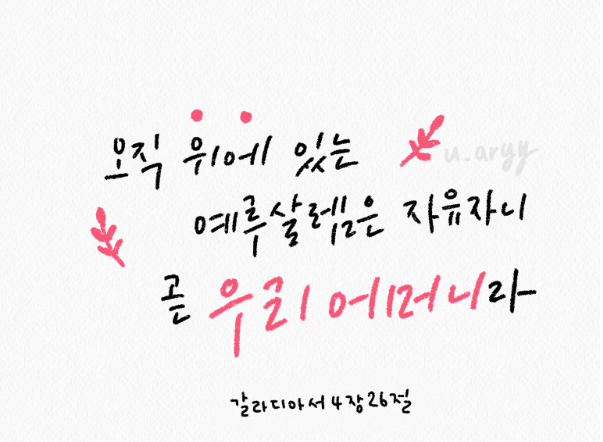 오직 위에 있는
u_aryy
예루살렘은 자유자니
곧 우리 어머니라
갈라디아서 4장 26절